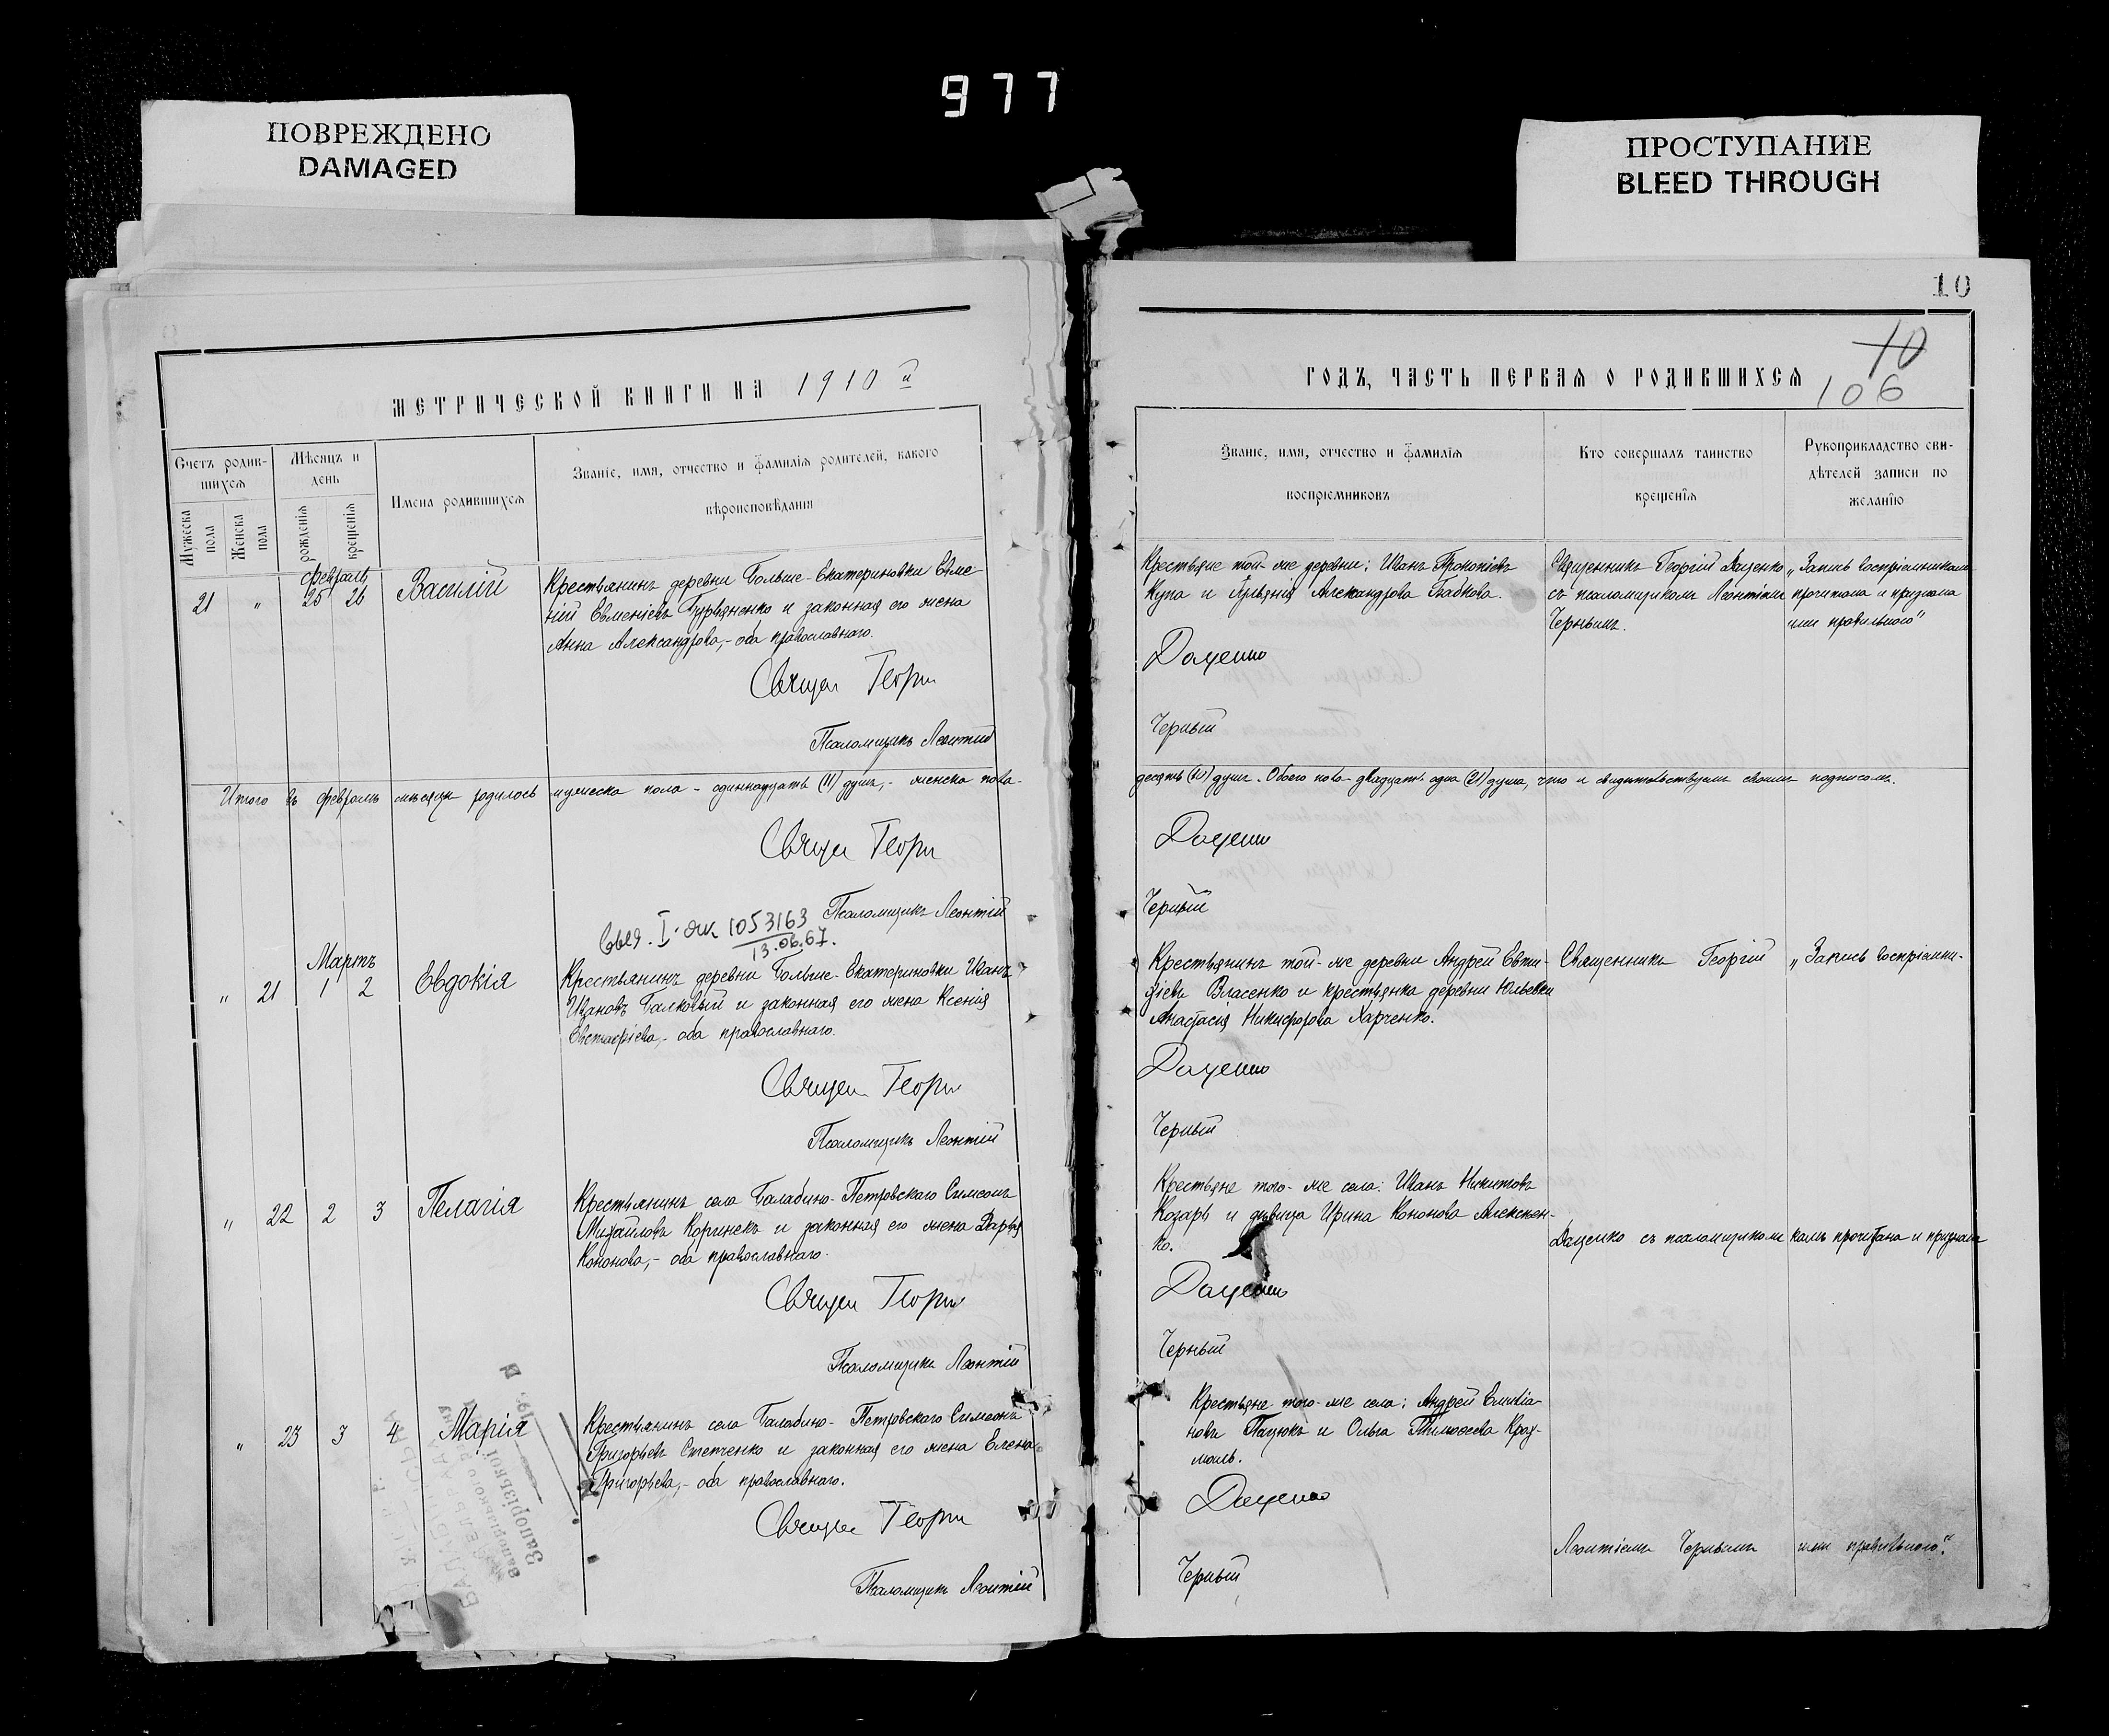 977
ПОВРЕЖДЕНО
DAMAGED
ПРОСТУПАНИЕ
BLEED THROUGH
МЕТРИЧЕСКОЙ КНИГИ НА 1910 й
Счетъ родив-
шихся
Мѣсяцъ и
день
Имена родившихся
Званіе, имя, отчество и фамилія родителей, какого
вѣроисповѣданія
Мужеска
пола
Женска
пола
рожденія
крещенія
февраль
21 " 25 26 Василій
Крестьянинъ деревни Больше-Екатериновки Евме
ній Евменіевъ Гурьяненко и законная его жена
Анна Александрова,- оба православнаго.
Священ Георги
Псаломщикъ Леонтій
Итого въ февралѣ мѣсяцѣ родилось мужеска пола - одиннадцать (11) душъ,- женска пола-
Священ Георги
Псаломщикъ Леонтій
I 1053163
13.06.67.
Мартъ
" 21 1 2 Евдокія
Крестьянинъ деревни Больше-Екатериновки Иванъ
Ивановъ Балковый и законная его жена Ксенія
Евстафіева,- оба православнаго.
Священ Георги
Псаломщикъ Леонтій
" 22 2 3 Пелагія
Крестьянинъ села Балабино-Петровскаго Симеонъ
Михайловъ Коринекъ и законная его жена Дарья
Кононова,- оба православнаго.
Священ Георги
Псаломщикъ Леонтій
" 23 3 4 Марія
Крестьянинъ села Балабино-Петровскаго Симеонъ
Григорьевъ Степченко и законная его жена Елена
Григорьева,- оба православнаго.
Священ Георги
Псаломщикъ Леонтій
Запорізької
10
10
106
ГОДЪ, ЧАСТЬ ПЕРВАЯ О РОДИВШИХСЯ
Званіе, имя, отчество и фамилія
воспріемниковъ
Кто совершалъ таинство
крещенія
Рукоприкладство сви-
дѣтелей записи по
желанію
Крестьяне той-же деревни: Иванъ Прокопіевъ
Купа и Александрова Бабкова.
Даценко
Черный
Священникъ Георгій Даценко
съ псаломщикомъ Леонтіемъ
Чернымъ.
„Запись воспріемниками
прочитана и признана
ими правильною"
десять (10) душъ. Обоего пола- двадцать одна (21) душа, что и свидѣтельствуемъ своимъ подписомъ.
Даценко
Черный
Крестьянинъ той-же деревни Андрей Евти-
хіевъ Власенко и крестьянка деревни Юльевки
Анастасія Никифорова Харченко.
Даценко
Черный
Священникъ Георгій
„Запись воспріемни-
Крестьяне того-же села: Иванъ Никитовъ
Козарь и дѣвица Ирина Кононова Алексеен-
ко.
Даценко
Черный
Даценко съ псаломщикомъ
камъ прочитана и признана
Крестьяне того-же села: Андрей Емиліа-
новъ Пацюкъ и Ольга Тимофеева Крох-
маль.
Даценко
Черный
Леонтіемъ Чернымъ
ими правильною".